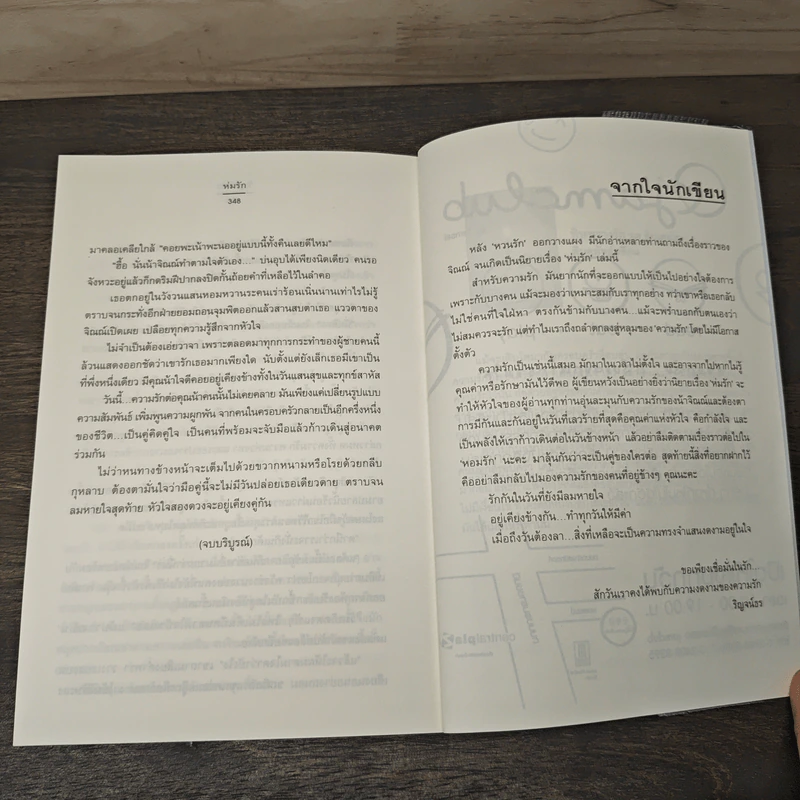 ห่มรัก
348
มาคลอเคลียใกล้ "คอยพะเน้าพะนออยู่แบบนี้ทั้งคืนเลยดีไหม"
"ฮื้อ นั่นน้าจิณณ์ทำตามใจตัวเอง..." บ่นอุบได้เพียงนิดเดียว คนรอ
จังหวะอยู่แล้วก็กดริมฝีปากลงปิดกั้นถ้อยคำที่เหลือไว้ในลำคอ
เธอตกอยู่ในวังวนแสนหอมหวานระคนเร่าร้อนเนิ่นนานเท่าไรไม่รู้
ตราบจนกระทั่งอีกฝ่ายยอมถอนจุมพิตออกแล้วสานสบตาเธอ แววตาของ
จิณณ์เปิดเผย เปลือยทุกความรู้สึกจากหัวใจ
ไม่จำเป็นต้องเอ่ยวาจา เพราะตลอดมาทุกการกระทำของผู้ชายคนนี้
ล้วนแสดงออกชัดว่าเขารักเธอมากเพียงใด นับตั้งแต่ยังเล็กเธอมีเขาเป็น
ที่พึ่งหนึ่งเดียว มีคุณน้าใจดีคอยอยู่เคียงข้างทั้งในวันแสนสุขและทุกข์สาหัส
วันนี้...ความรักต่อคุณน้าคนนั้นไม่เคยคลาย มันเพียงแค่เปลี่ยนรูปแบบ
ความสัมพันธ์ เพิ่มพูนความผูกพัน จากคนในครอบครัวกลายเป็นอีกครึ่งหนึ่ง
ของชีวิต...เป็นคู่คิดคู่ใจ เป็นคนที่พร้อมจะจับมือแล้วก้าวเดินสู่อนาคต
ร่วมกัน
ไม่ว่าหนทางข้างหน้าจะเต็มไปด้วยขวากหนามหรือโรยด้วยกลีบ
กุหลาบ ต้องตามั่นใจว่ามือคู่นี้จะไม่มีวันปล่อยเธอเดียวดาย ตราบจน
ลมหายใจสุดท้าย หัวใจสองดวงจะอยู่เคียงคู่กัน
(จบบริบูรณ์)
จากใจนักเขียน
หลัง 'หวนรัก' ออกวางแผง มีนักอ่านหลายท่านถามถึงเรื่องราวของ
จิณณ์ จนเกิดเป็นนิยายเรื่อง 'ห่มรัก' เล่มนี้
สำหรับความรัก มันยากนักที่จะออกแบบให้เป็นไปอย่างใจต้องการ
เพราะกับบางคน แม้จะมองว่าเหมาะสมกับเราทุกอย่าง ทว่าเขาหรือเธอกลับ
ไม่ใช่คนที่ใจใฝ่หา ตรงกันข้ามกับบางคน...แม้จะพร่ำบอกกับตนเองว่า
ไม่สมควรจะรัก แต่ทำไมเราถึงถลำตกลงสู่หลุมของ 'ความรัก' โดยไม่มีโอกาส
ตั้งตัว
ความรักเป็นเช่นนี้เสมอ มักมาในเวลาไม่ตั้งใจ และอาจจากไปหากไม่รู้
คุณค่าหรือรักษามันไว้ดีพอ ผู้เขียนหวังเป็นอย่างยิ่งว่านิยายเรื่อง 'ห่มรัก' จะ
ทำให้หัวใจของผู้อ่านทุกท่านอุ่นละมุนกับความรักของน้าจิณณ์และต้องตา
การมีกันและกันอยู่ในวันที่เลวร้ายที่สุดคือคุณค่าแห่งหัวใจ คือกำลังใจ และ
เป็นพลังให้เราก้าวเดินต่อในวันข้างหน้า แล้วอย่าลืมติดตามเรื่องราวต่อไปใน
'หอมรัก' นะคะ มาลุ้นกันว่าจะเป็นคู่ของใครต่อ สุดท้ายนี้สิ่งที่อยากฝากไว้
คืออย่าลืมกลับไปมองความรักของคนที่อยู่ข้างๆ คุณนะคะ
รักกันในวันที่ยังมีลมหายใจ
อยู่เคียงข้างกัน...ทำทุกวันให้มีค่า
เมื่อถึงวันต้องลา...สิ่งที่เหลือจะเป็นความทรงจำแสนงดงามอยู่ในใจ
ขอเพียงเชื่อมั่นในรัก...
สักวันเราคงได้พบกับความงดงามของความรัก
ริญจน์ธร